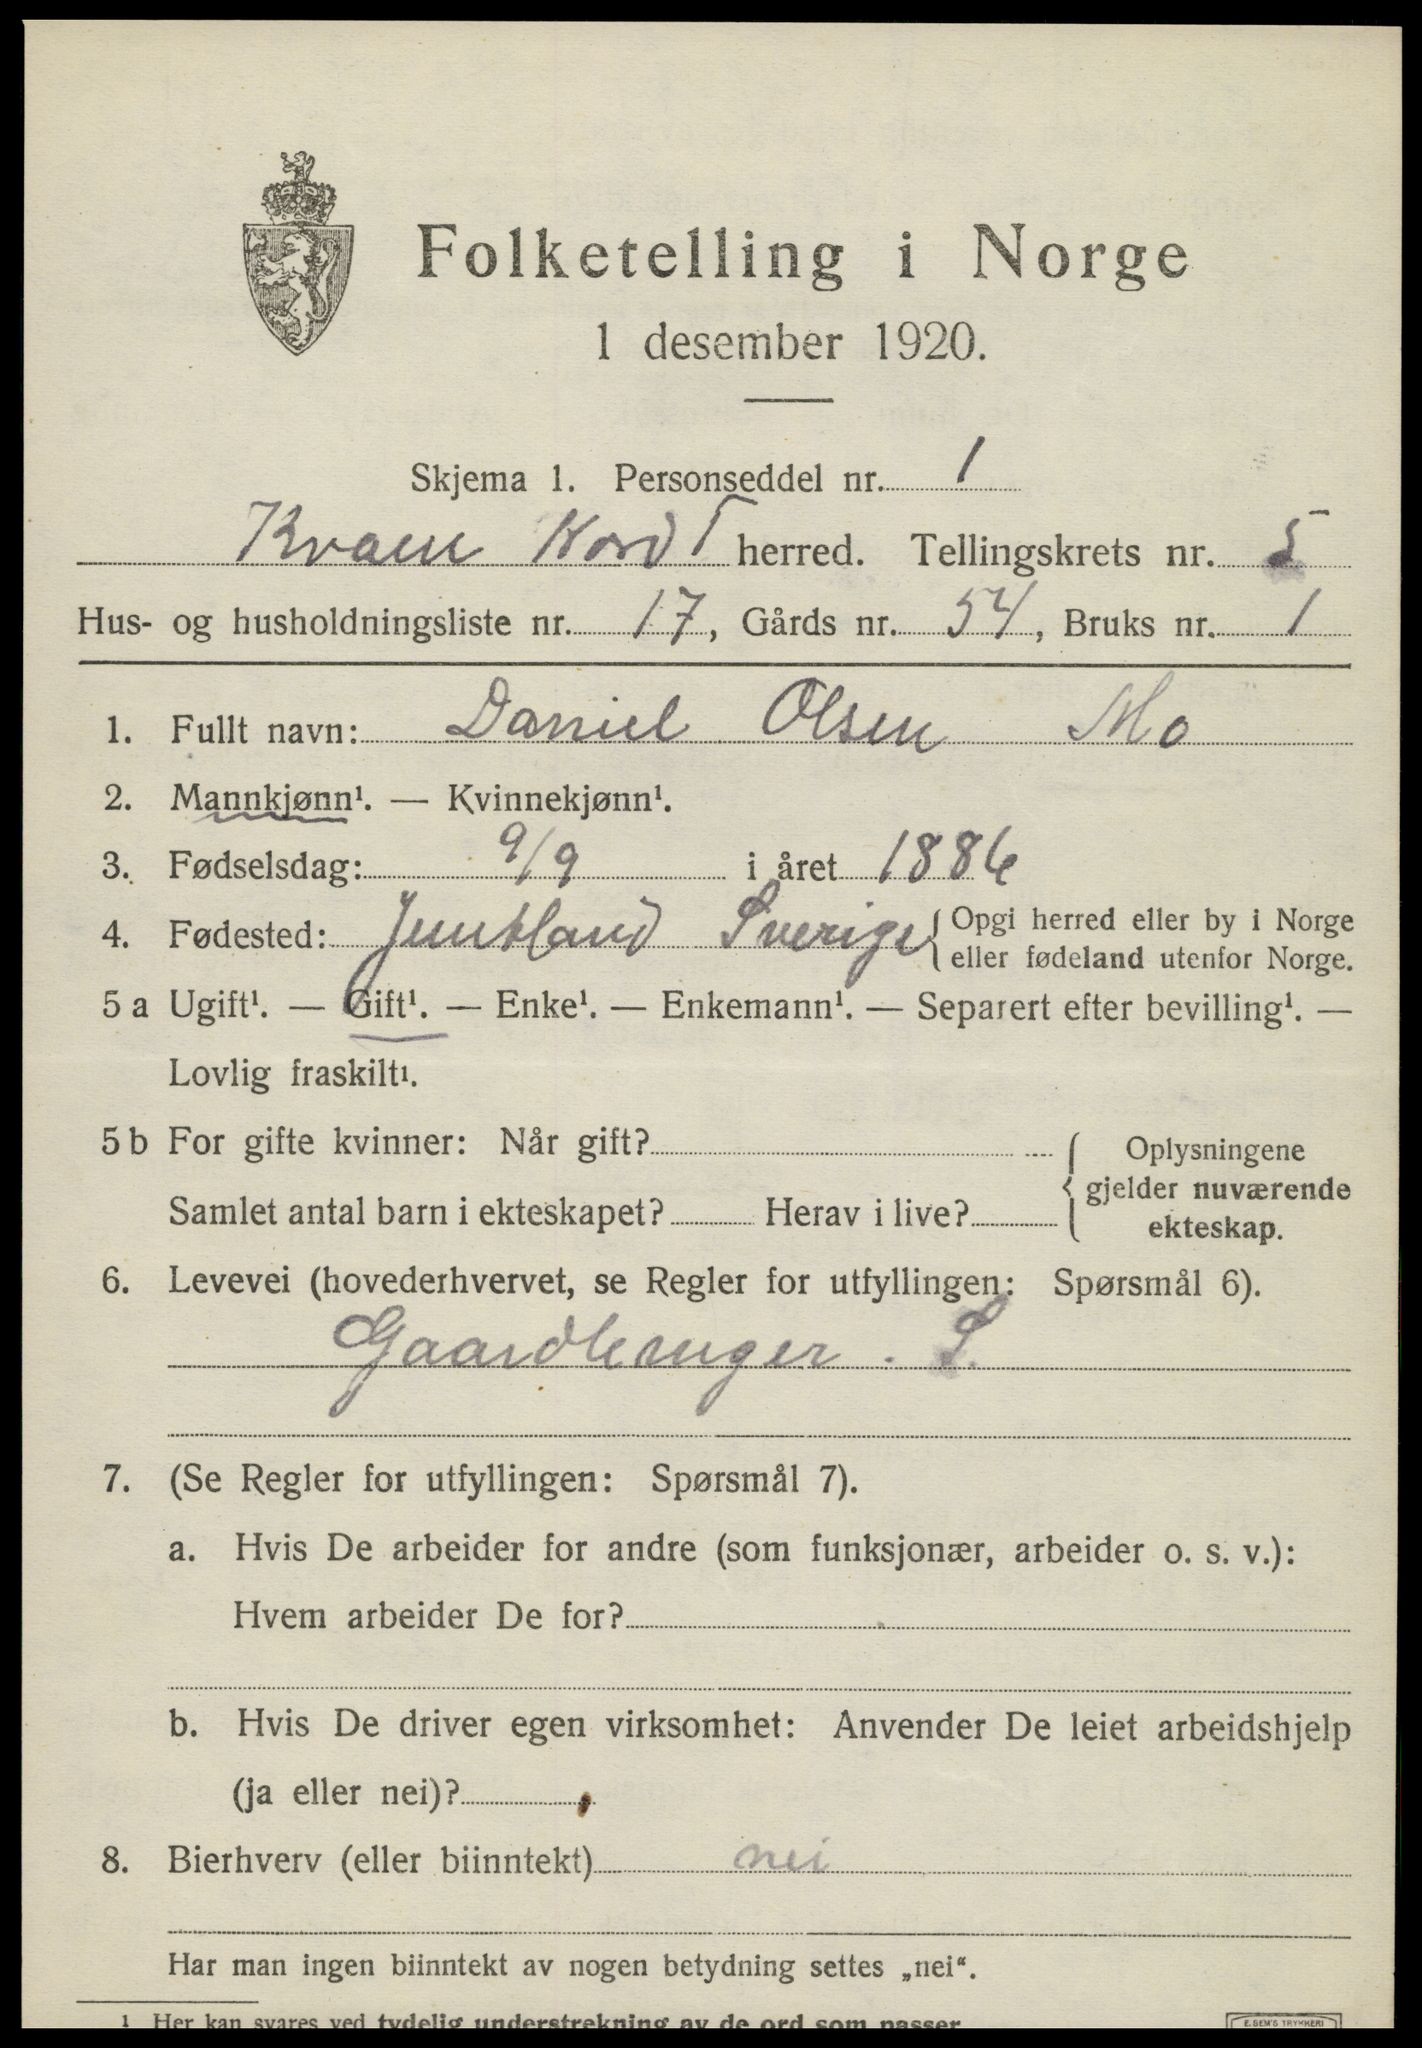 Folketelling i Norge
1 desember 1920.
Skjema 1. Personseddel nr. 1
Kvam Nord T herred. Tellingskrets nr. 5
Hus- og husholdningsliste nr. 17, Gårds nr. 54, Bruks nr. 1
1. Fullt navn: Daniel Olsen Mo
2. Mannkjønn¹. — Kvinnekjønn¹.
3. Fødselsdag: 9/9 i året 1886
4. Fødested: Jemtland Sverige { Opgi herred eller by i Norge
eller fødeland utenfor Norge.
5 a Ugift¹. — Gift¹. — Enke¹. — Enkemann¹. — Separert efter bevilling¹. —
Lovlig fraskilt¹.
5 b For gifte kvinner: Når gift?
Samlet antal barn i ekteskapet? Herav i live?
{ Oplysningene
gjelder nuværende
ekteskap.
6. Levevei (hovederhvervet, se Regler for utfyllingen: Spørsmål 6).
Gaardbruger. S.
7. (Se Regler for utfyllingen: Spørsmål 7).
a. Hvis De arbeider for andre (som funksjonær, arbeider o. s. v.):
Hvem arbeider De for?
b. Hvis De driver egen virksomhet: Anvender De leiet arbeidshjelp
(ja eller nei)?
8. Bierhverv (eller biinntekt) nei
Har man ingen biinntekt av nogen betydning settes „nei“.
¹ Her kan svares ved tydelig understrekning av de ord som passer.
E. SEM'S TRYKKERI